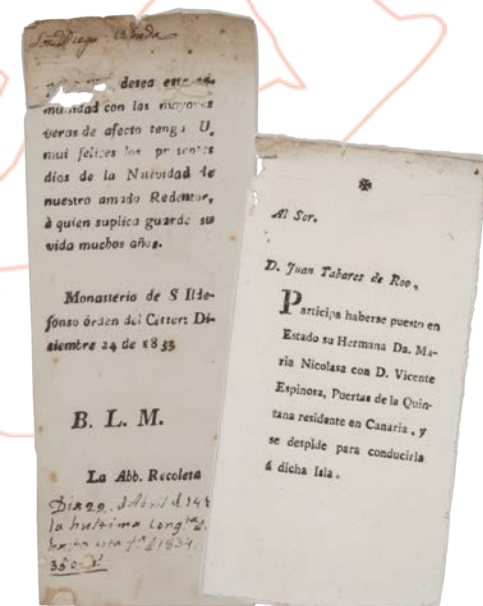 desea esta co-
munidad con las mayores
veras de afecto tenga U.
mui felices los presentes
dias de la Natividad de
nuestro amado Redentor,
à quien suplica guarde su
vida muchos años.
Monasterio de S Ilde-
fonso órden del Cister: Di-
siembre 24 de 1833
B. L. M.
La Abb. Recoleta
Dia 20. d Abril d
la hultima
hasta
350
✠
Al Sor.
D. Juan Tabares de Roo,
Participa haberse puesto en
Estado su Hermana Da. Ma-
ria Nicolasa con D. Vicente
Espinosa, Puertas de la Quin-
tana residente en Canaria, y
se despide para conducirla
á dicha Isla.